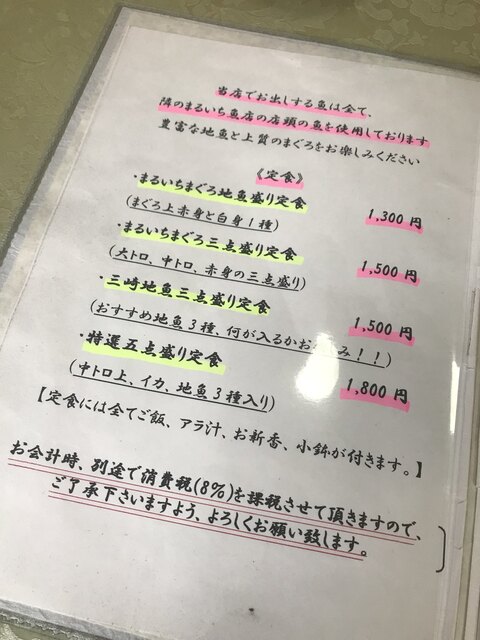 当店でお出しする魚は全て、
隣のまるいち魚店の店頭の魚を使用しております
豊富な地魚と上質のまぐろをお楽しみください
《定食》
・まるいちまぐろ地魚盛り定食
(まぐろ上赤身と白身1種) 1,300円
・まるいちまぐろ三点盛り定食
(大トロ、中トロ、赤身の三点盛り) 1,500円
・三崎地魚三点盛り定食
(おすすめ地魚3種、何が入るかお み!!) 1,500円
・特選五点盛り定食
(中トロ上、イカ、地魚3種入り) 1,800円
【定食には全てご飯、アラ汁、お新香、小鉢が付きます。】
お会計時、別途で消費税(8%)を課税させて頂きますので、
ご了承下さいますよう、よろしくお願い致します。